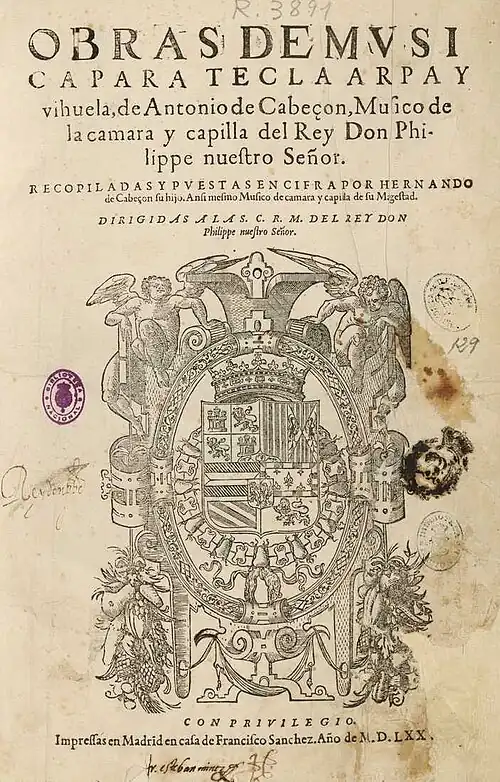 R.3891
OBRAS DE MVSI
CA PARA TECLA ARPA Y
vihuela, de Antonio de Cabeçon, Musico de
la camara y capilla del Rey Don Phi-
lippe nuestro Señor.
RECOPILADAS Y PVESTAS EN CIFRA POR HERNANDO
de Cabeçon su hijo. Ansi mesmo Musico de camara y capilla de su Magestad.
DIRIGIDAS A LA S. C. R. M. DEL REY DON
Philippe nuestro Señor.
129
CON PRIVILEGIO.
Impressas en Madrid en casa de Francisco Sanchez. Año de M.D.LXX.